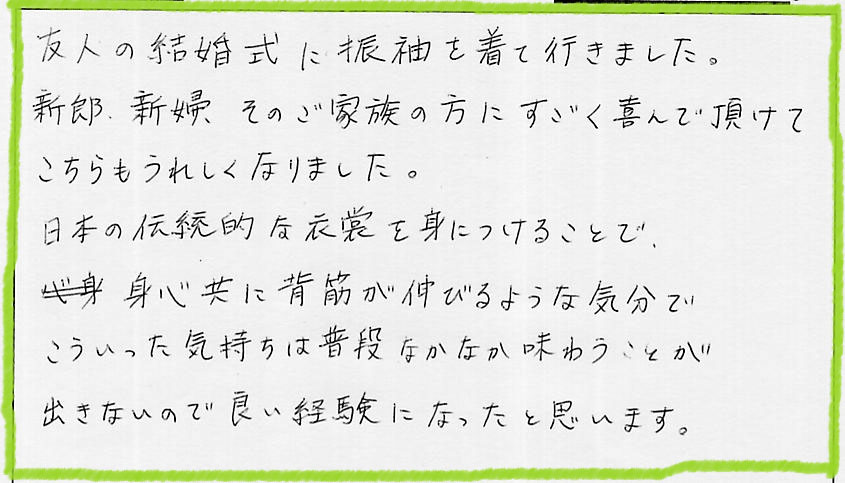 友人の結婚式に振袖を着て行きました。
新郎、新婦、そのご家族の方にすごく喜んで頂けて
こちらもうれしくなりました。
日本の伝統的な衣裳を身につけることで、
心身 身心共に背筋が伸びるような気分で
こういった気持ちは普段なかなか味わうことが
出きないので良い経験になったと思います。